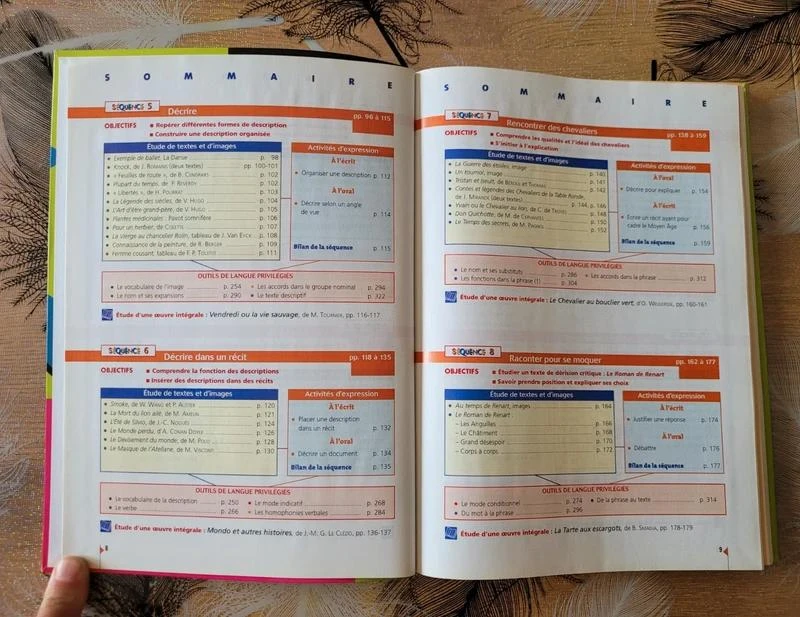 SOMMAIRE
SÉQUENCE 5
Décrire
pp. 96 à 115
OBJECTIFS
■ Repérer différentes formes de description
■ Construire une description organisée
Étude de textes et d'images
• Exemple de ballet, La Danse p. 98
• Knock, de J. ROMAINS (deux textes) pp. 100-101
• « Feuilles de route », de B. CENDRARS p. 102
• Plupart du temps, de P. REVERDY p. 102
• « Libertés », de H. POURRAT p. 103
• La Légende des siècles, de V. HUGO p. 104
• L'Art d'être grand-père, de V. HUGO p. 105
• Plantes médicinales : Pavot somnifère p. 106
• Pour un herbier, de COLETTE p. 107
• La Vierge au chancelier Rolin, tableau de J. VAN EYCK p. 108
• Connaissance de la peinture, de R. BERGER p. 109
• Femme cousant, tableau de F. P. p. 111
Activités d'expression
À l'écrit
• Organiser une description p. 112
À l'oral
• Décrire selon un angle
de vue p. 114
Bilan de la séquence p. 115
OUTILS DE LANGUE PRIVILÉGIÉS
• Le vocabulaire de l'image p. 254 • Les accords dans le groupe nominal p. 294
• Le nom et ses expansions p. 290 • Le texte descriptif p. 322
Étude d'une œuvre intégrale : Vendredi ou la vie sauvage, de M. TOURNIER, pp. 116-117
SÉQUENCE 6
Décrire dans un récit
pp. 118 à 135
OBJECTIFS
■ Comprendre la fonction des descriptions
■ Insérer des descriptions dans des récits
Étude de textes et d'images
• Smoke, de W. WANG et P. AUSTER p. 120
• La Mort du lion ailé, de M. AMELIN p. 121
• L'Été de Silvio, de J.-C. NOGUÈS p. 124
• Le Monde perdu, d'A. CONAN DOYLE p. 126
• Le Devisement du monde, de M. POLO p. 128
• Le Masque de l'Atellane, de M. VISCONTI p. 130
Activités d'expression
À l'écrit
• Placer une description
dans un récit p. 132
À l'oral
• Décrire un document p. 134
Bilan de la séquence p. 135
OUTILS DE LANGUE PRIVILÉGIÉS
• Le vocabulaire de la description p. 250 • Le mode indicatif p. 268
• Le verbe p. 266 • Les homophonies verbales p. 284
Étude d'une œuvre intégrale : Mondo et autres histoires, de J.-M. G. LE CLÉZIO, pp. 136-137
8
SOMMAIRE
SÉQUENCE 7
Rencontrer des chevaliers
pp. 138 à 159
OBJECTIFS
■ Comprendre les qualités et l'idéal des chevaliers
■ S'initier à l'explication
Étude de textes et d'images
• La Guerre des étoiles, image
• Un tournoi, image p. 140
• Tristan et Iseult, de BÉROUL et THOMAS p. 141
• Contes et légendes des Chevaliers de la Table Ronde, p. 142
de J. MIRANDE (deux textes) p. 144, p. 146
• Yvain ou le Chevalier au lion, de C. DE TROYES p. 148
• Don Quichotte, de M. DE CERVANTÈS p. 150
• Le Temps des secrets, de M. PAGNOL p. 152
Activités d'expression
À l'oral
• Décrire pour expliquer p. 154
À l'écrit
• Écrire un récit ayant pour
cadre le Moyen Âge p. 156
Bilan de la séquence p. 159
OUTILS DE LANGUE PRIVILÉGIÉS
• Le nom et ses substituts p. 286 • Les accords dans la phrase p. 312
• Les fonctions dans la phrase (1) p. 304
Étude d'une œuvre intégrale : Le Chevalier au bouclier vert, d'O. WEULERSSE, pp. 160-161
SÉQUENCE 8
Raconter pour se moquer
pp. 162 à 177
OBJECTIFS
■ Étudier un texte de dérision critique : Le Roman de Renart
■ Savoir prendre position et expliquer ses choix
Étude de textes et d'images
• Au temps de Renart, images p. 164
• Le Roman de Renart
– Les Anguilles p. 166
– Le Châtiment p. 168
– Grand désespoir p. 170
– Corps à corps p. 172
Activités d'expression
À l'écrit
• Justifier une réponse p. 174
À l'oral
• Débattre p. 176
Bilan de la séquence p. 177
OUTILS DE LANGUE PRIVILÉGIÉS
• Le mode conditionnel p. 274 • De la phrase au texte p. 314
• Du mot à la phrase p. 296
Étude d'une œuvre intégrale : La Tarte aux escargots, de B. SMADJA, pp. 178-179
9